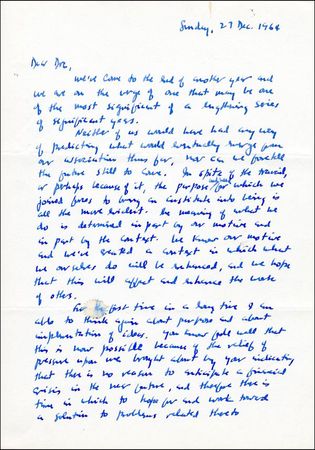 Sunday, 27 Dec. 1964
Dear Doz,
We've come to the end of another year and
we are on the verge of one that may be one
of the most significant of a lengthening series
of significant years.
Neither of us would have had any way
of predicting what would eventually emerge from
our association thus far, nor can we foretell
the future still to come. In spite of the travail,
or perhaps because of it, the purpose for which we
joined forces to bring an institute into being is
all the more evident. The meaning of what we
do is determined in part by our motive and
in part by the context. We know our motive
and we've created a context in which what
we ourselves do will be enhanced, and we hope
that this will affect and enhance the work
of others.
For the first time in a long time I am
able to think again about purpose and about
implementation of ideas. You know full well that
this is now possible because of the relief of
pressure upon me brought about by your indicating
that there is no reason to anticipate a financial
crisis in the near future, and therefore there is
time in which to hope for and work toward
a solution to problems related thereto